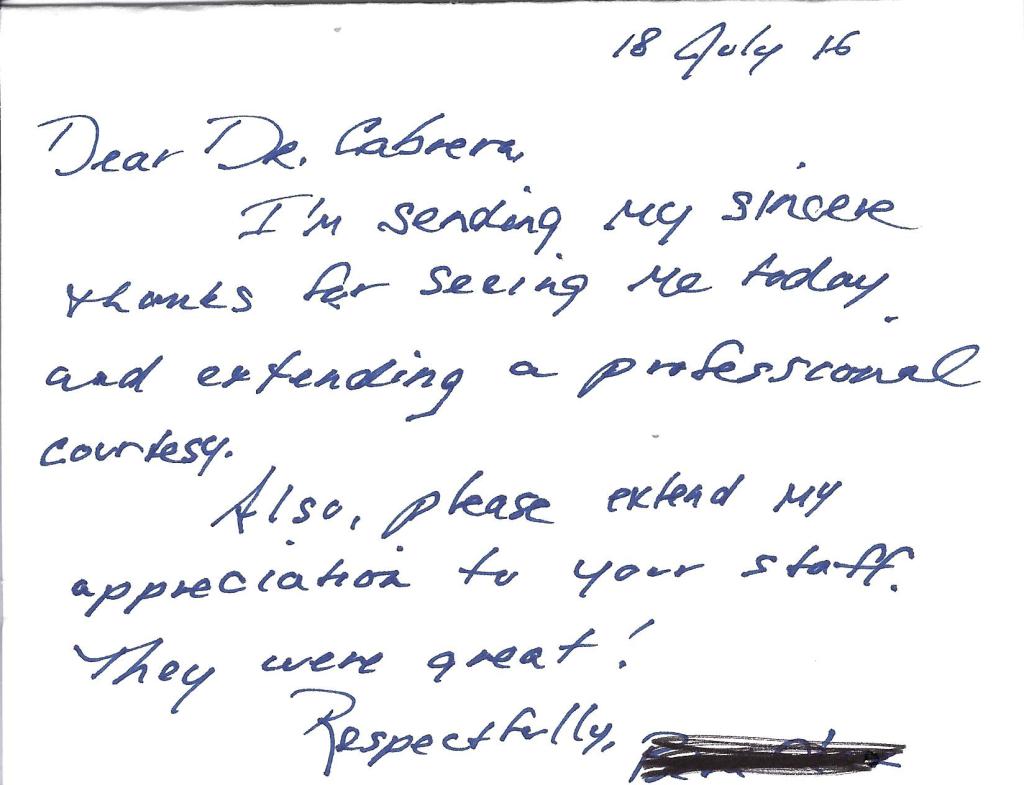 18 July 16
Dear Dr. Cabrera,
I'm sending my sincere
thanks for seeing me today
and extending a professional
courtesy.
Also, please extend my
appreciation to your staff.
They were great!
Respectfully,